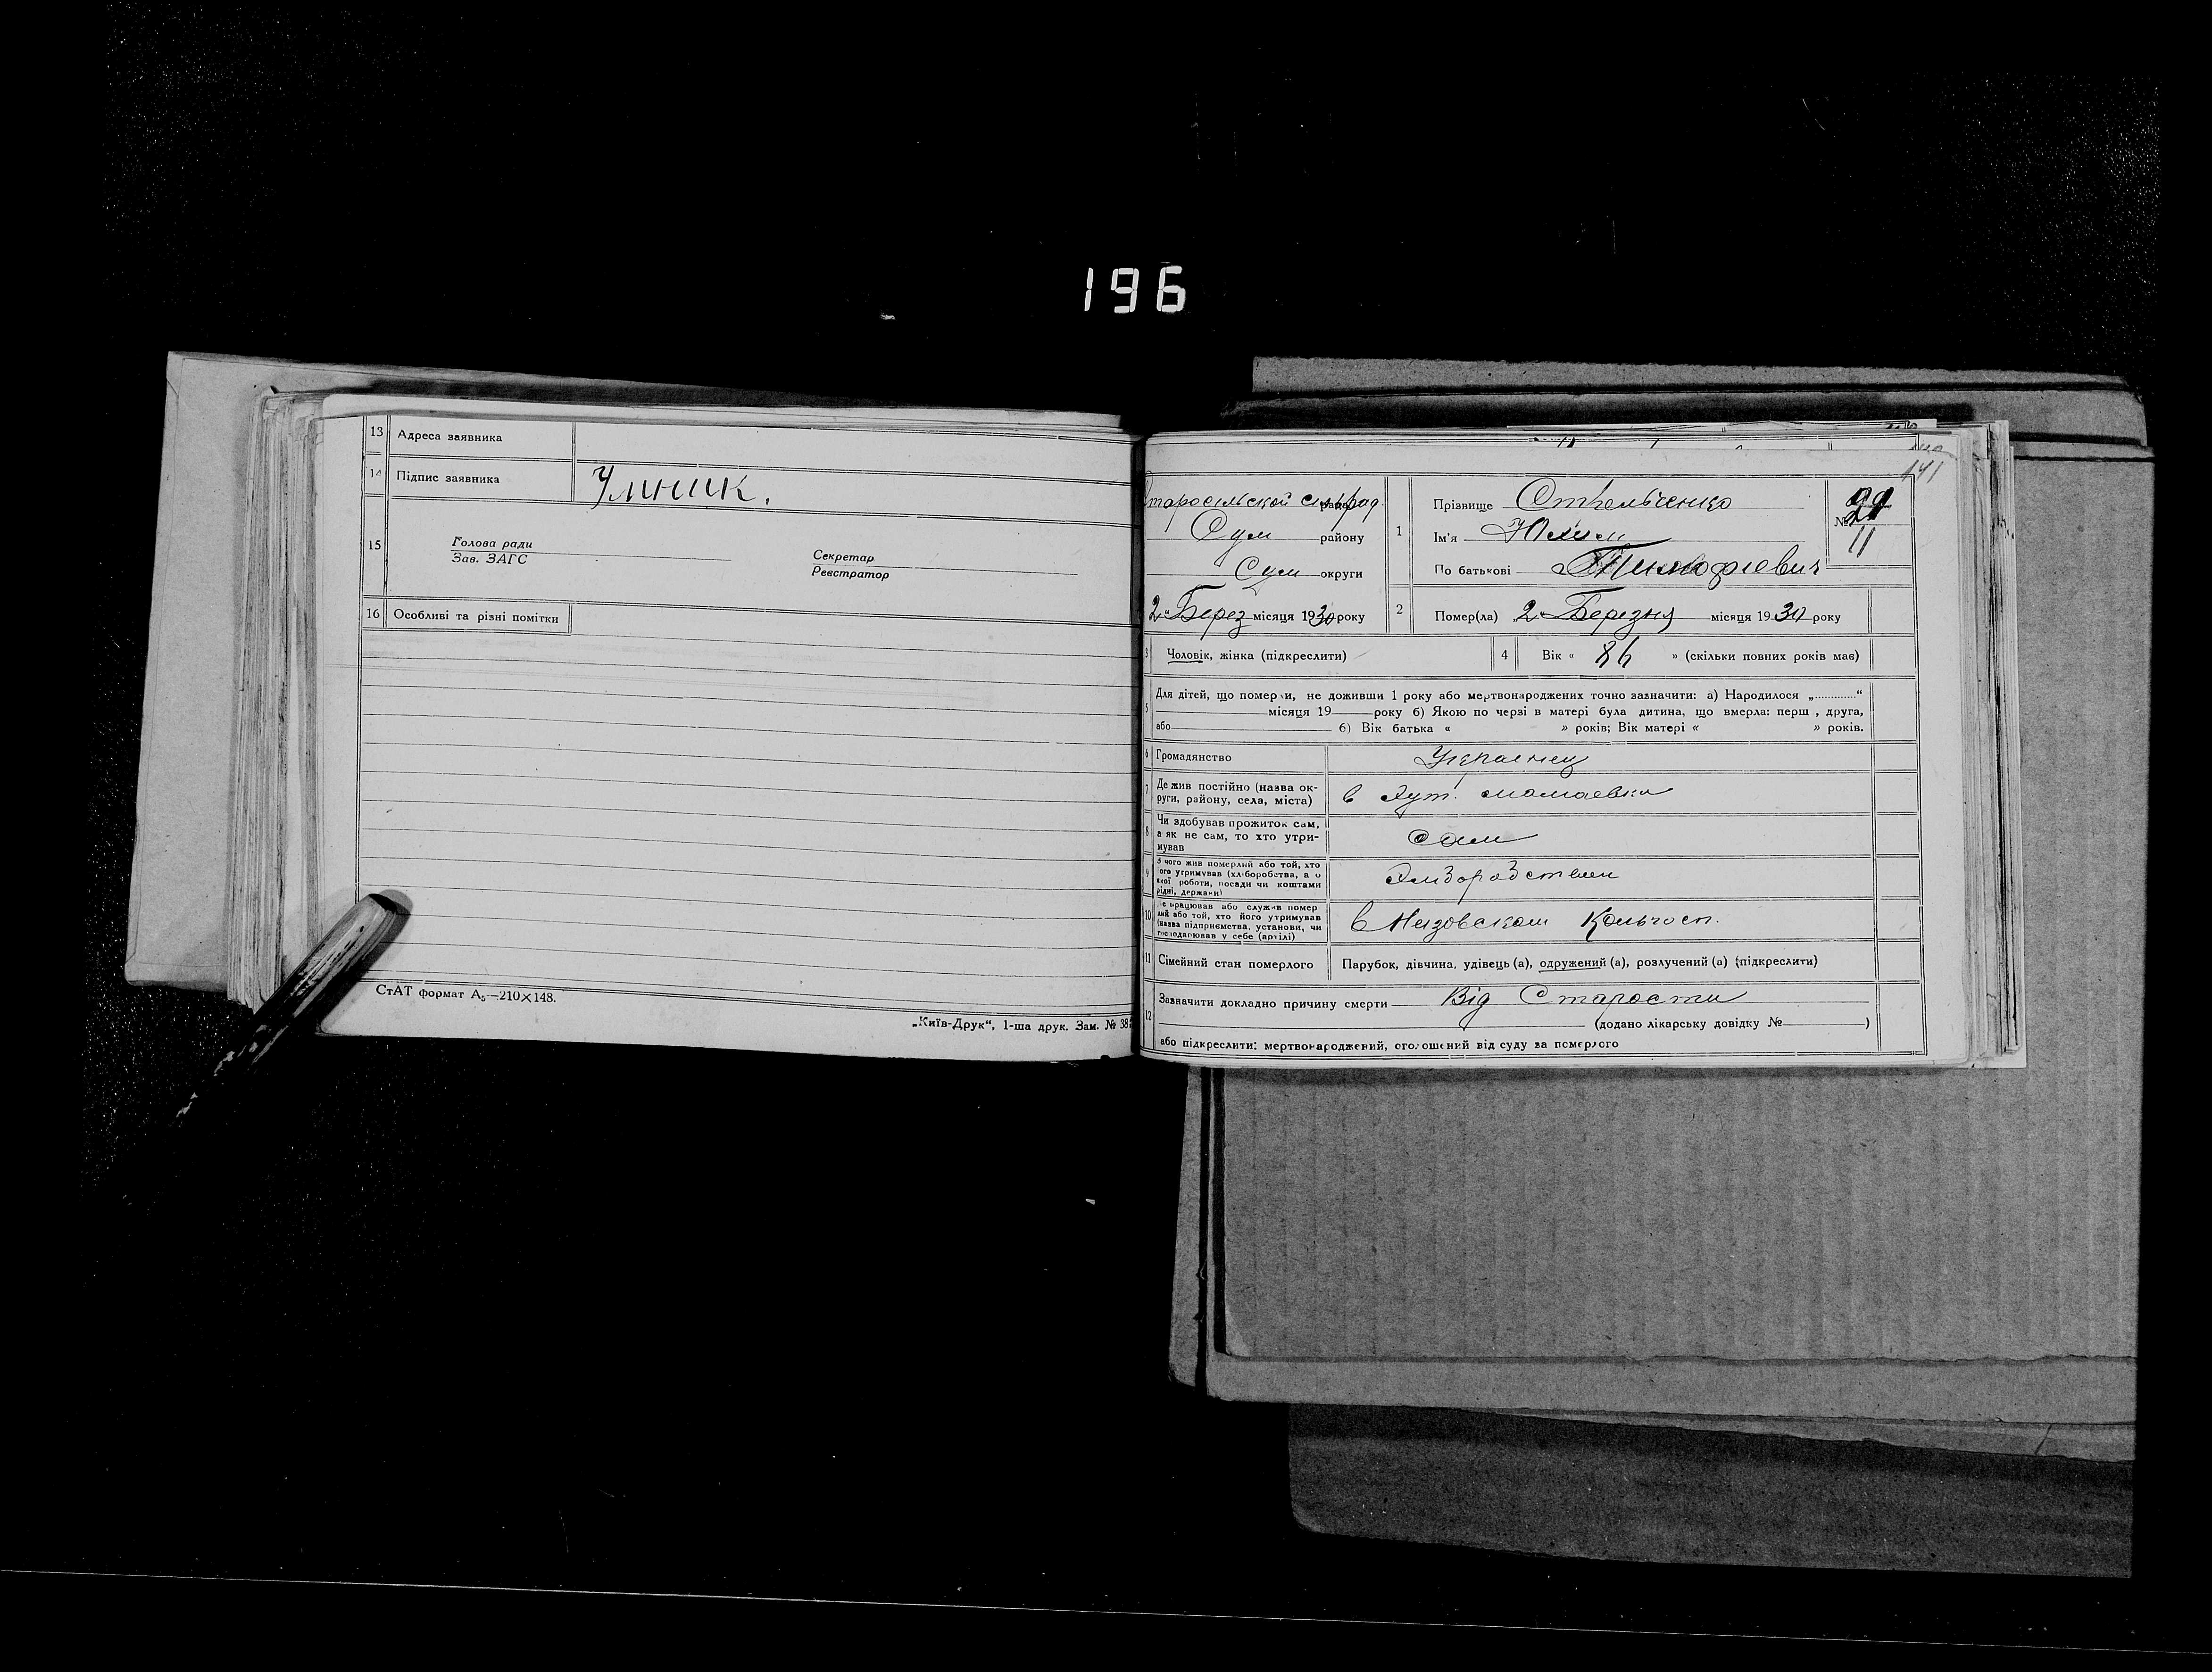 196
13 Адреса заявника
14 Підпис заявника Умник.
15 Голова ради
Зав. ЗАГС
Секретар
Реєстратор
16 Особливі та різні помітки
СтАТ формат А₅—210×148.
„Київ-Друк“, 1-ша друк. Зам. № 38
141
таросільской
Сум району
Сум округи
2 „Берез місяця 1930 року
1 Прізвище
Ім'я Юхим
По батькові
№ 21
11
2 Помер(ла) 2 „Березня місяця 1930 року
3 Чоловік, жінка (підкреслити)
4 Вік « 86 » (скільки повних років має)
5 Для дітей, що померли, не доживши 1 року або мертвонароджених точно зазначити: а) Народилося „.............“
місяця 19 року б) Якою по черзі в матері була дитина, що вмерла: перш , друга,
або б) Вік батька « » років; Вік матері « » років.
6 Громадянство Украінец
7 Де жив постійно (назва ок-
руги, району, села, міста)
в Хут. мамаевки
8 Чи здобував прожиток сам,
а як не сам, то хто утри-
мував
сам
9 З чого жив померлий або той, хто
його утримував (хліборобства, а о
якої роботи, посади чи коштами
рідні, держави)
10 Де працював або служив помер
лий або той, хто його утримував
(назва підприємства, установи, чи
господарював у себе (артілі)
в Низовском
11 Сімейний стан померлого
Парубок, дівчина, удівець (а), одружений (а), розлучений (а) (підкреслити)
12 Зазначити докладно причину смерти Від Старости
(додано лікарську довідку № )
або підкреслити: мертвонароджений, оголошений від суду за померлого